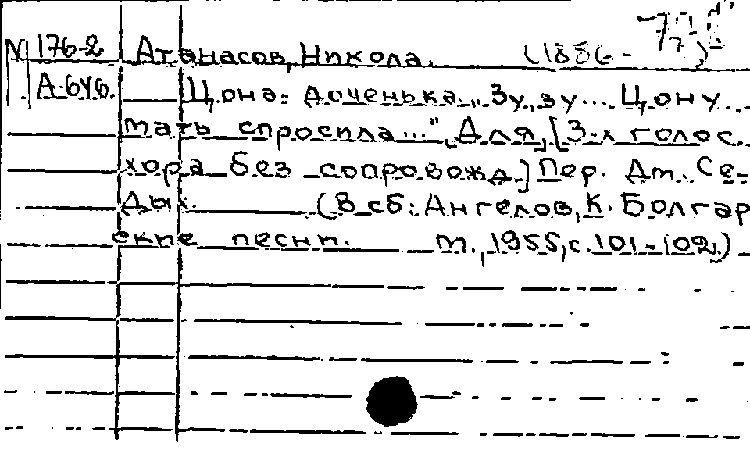 М 176-2 Атанасов, Никола. (1886-
А-646. Цона: доченька. „Зу, зу... Цону
мать спросила...". Для [3-х голос.
хора без сопровожд.] Пер. Дм. Се-
дых. (В сб: Ангелов, К. Болгар
ские песни. м., 1955, с. 101-102.)